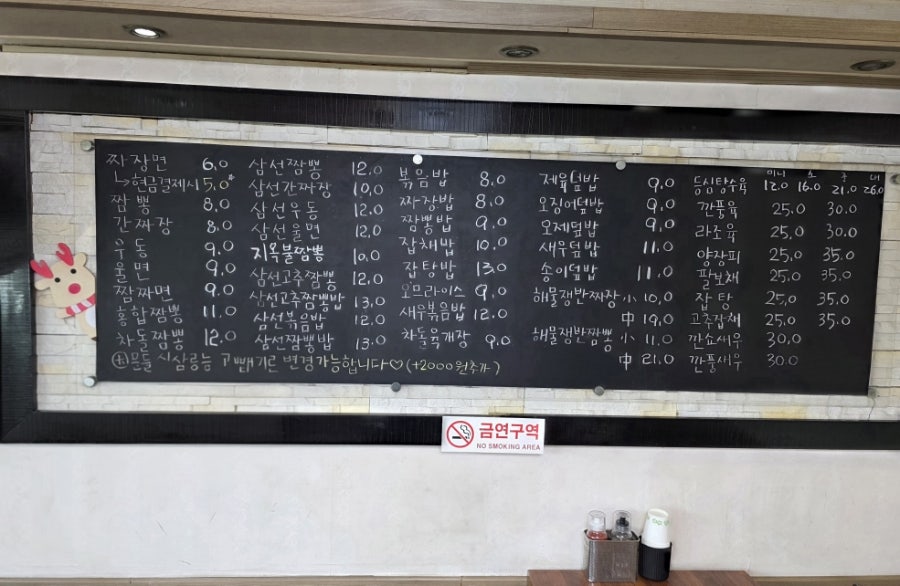 짜장면 6.0
↳현금결제시 5.0*
짬뽕 8.0
간짜장 8.0
우동 9.0
울면 9.0
짬짜면 9.0
홍합짬뽕 11.0
차돌짬뽕 12.0
삼선짬뽕 12.0
삼선간짜장 10.0
삼선우동 12.0
삼선울면 12.0
지옥불짬뽕 10.0
삼선고추짬뽕 12.0
삼선고추짬뽕밥 13.0
삼선볶음밥 12.0
삼선짬뽕밥 13.0
볶음밥 8.0
짜장밥 8.0
짬뽕밥 9.0
잡채밥 10.0
잡탕밥 13.0
오므라이스 9.0
새우볶음밥 12.0
차돌육개장 9.0
제육덮밥 9.0
오징어덮밥 9.0
오제덮밥 9.0
새우덮밥 11.0
송이덮밥 11.0
해물쟁반짜장 小 10.0
中 19.0
해물쟁반짬뽕 小 11.0
中 21.0
미니 소 중 대
등심탕수육 12.0 16.0 21.0 26.0
깐풍육 25.0 30.0
라조육 25.0 30.0
양장피 25.0 35.0
팔보채 25.0 35.0
잡탕 25.0 35.0
고추잡채 25.0 35.0
깐쇼새우 30.0
깐풍새우 30.0
변경가능합니다♡(+2000원추가)
금연구역
NO SMOKING AREA